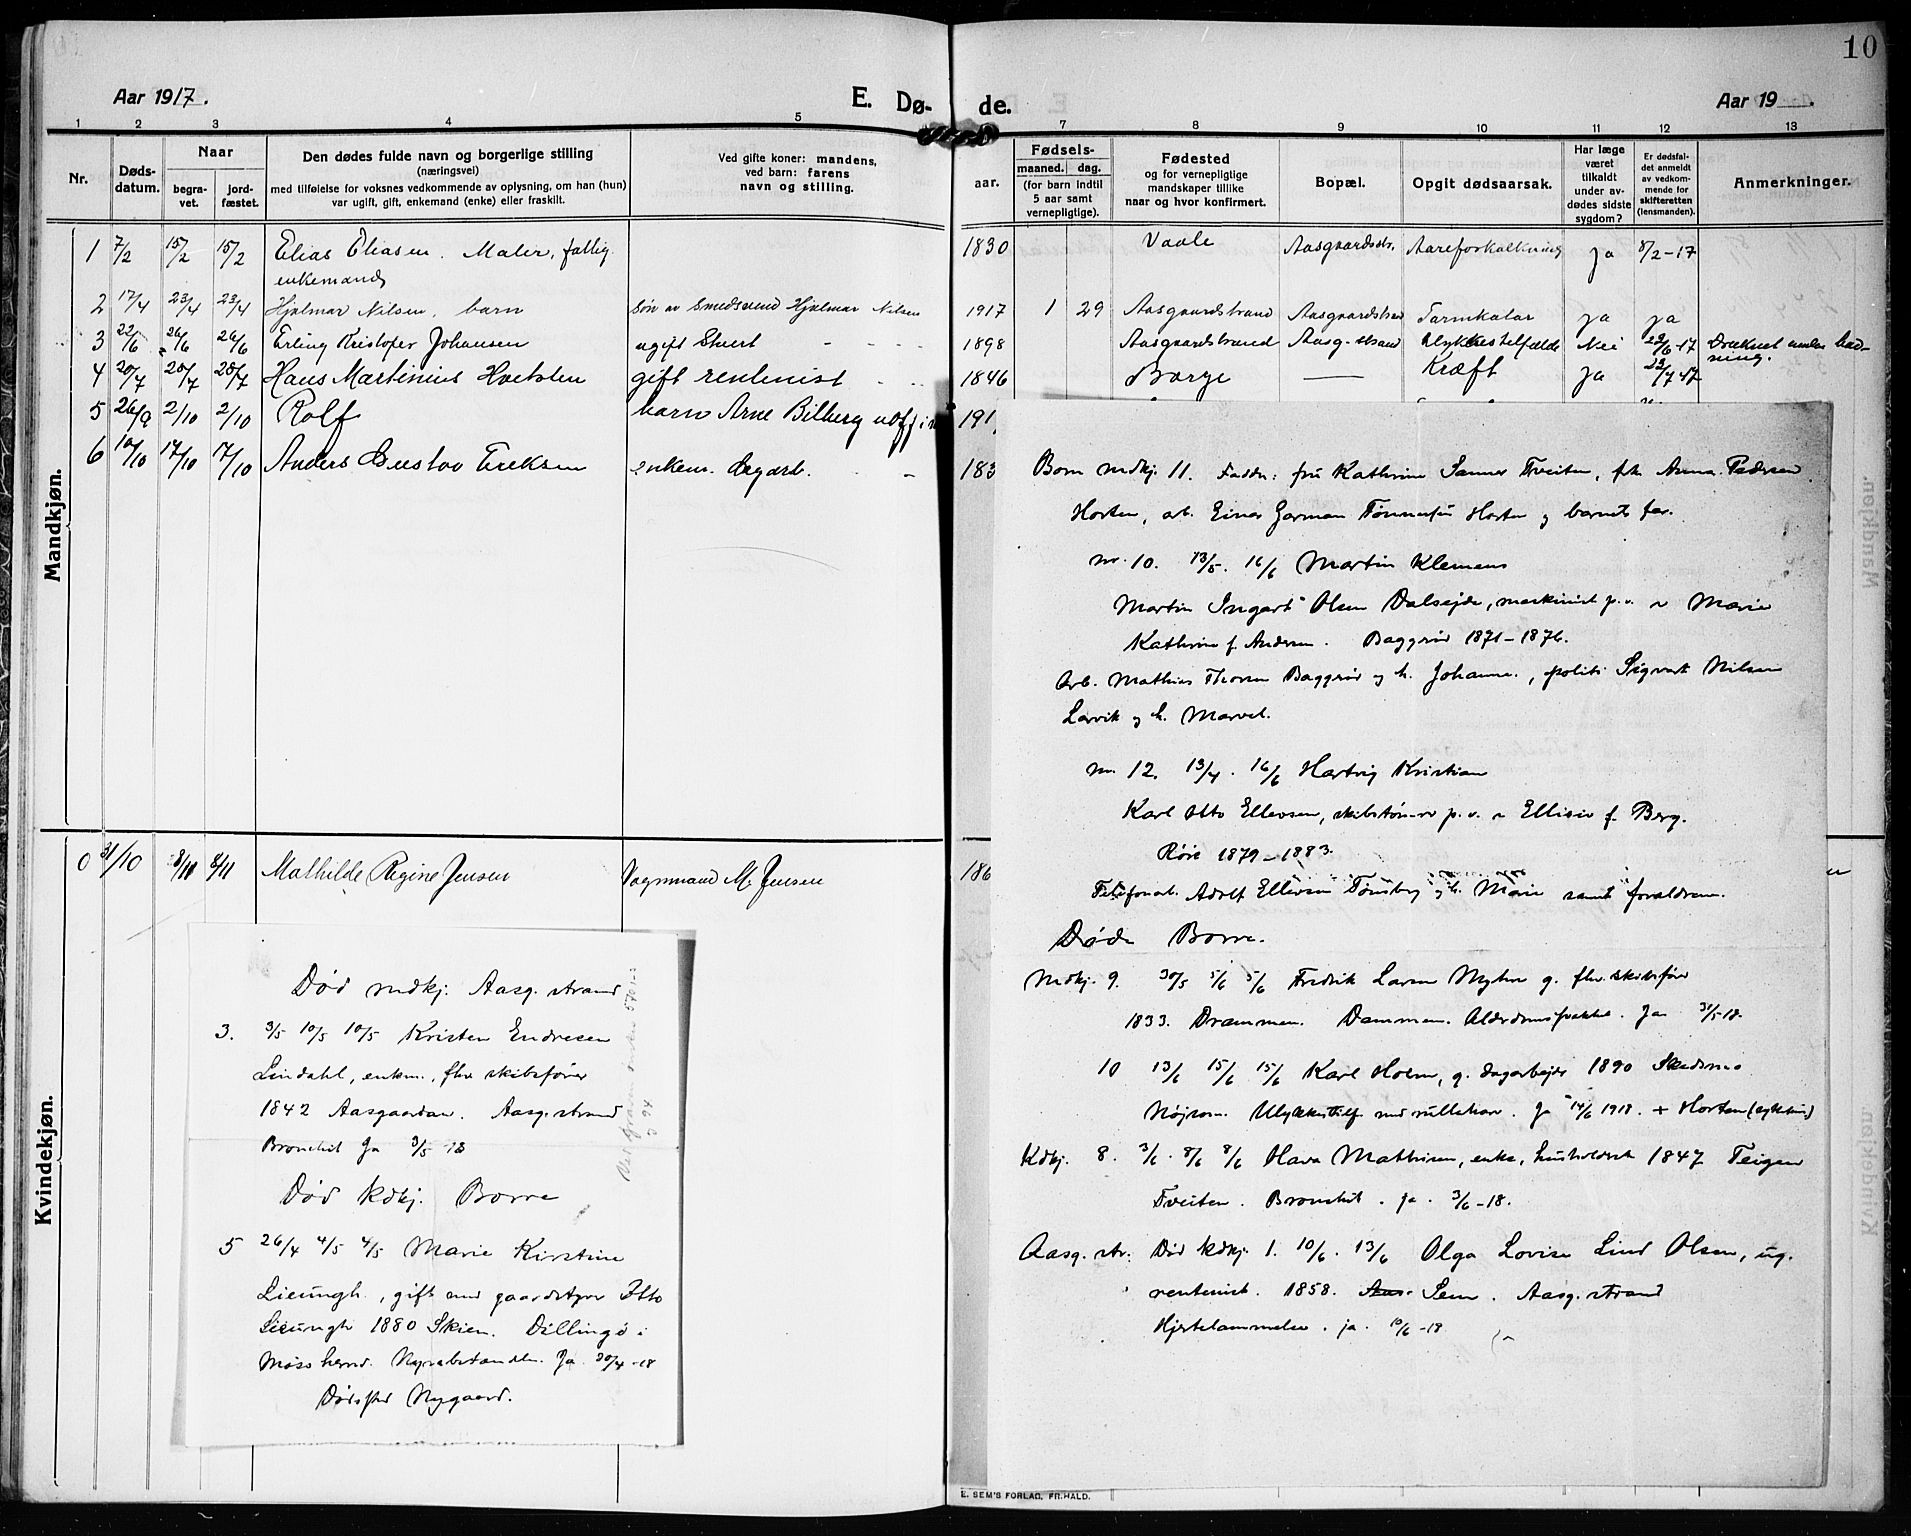 10
Aar 1917. E. Dø- de. Aar 19
1 2 3 4 5 7 8 9 10 11 12 13
Nr. Døds-datum. Naar begra-vet. jord-fæstet. Den dødes fulde navn og borgerlige stilling (næringsvei) med tilføielse for voksnes vedkommende av oplysning, om han (hun) var ugift, gift, enkemand (enke) eller fraskilt. Ved gifte koner: mandens, ved barn: farens navn og stilling. Fødsels- aar. maaned. dag. (for barn indtil 5 aar samt vernepligtige). Fødested og for vernepligtige mandskaper tillike naar og hvor konfirmert. Bopæl. Opgit dødsaarsak. Har læge været tilkaldt under av-dødes sidste sygdom? Er dødsfal-det anmeldt av vedkom-mende for skifteretten (lensmanden). Anmerkninger.
Mandkjøn.
1 7/2 15/2 15/2 Elias Eliasen. Maler, fattig 1830 Vaale Aasgaardsstr. Aareforkalkning Ja 8/2-17
enkemand
2 17/4 23/4 23/4 Hjalmar Nilsen, barn søn av smedsvend Hjalmar Nilsen 1917 1 29 Aasgaardstrand Aasgaardstrand Tarmkatar ja ja
3 22/6 26/6 26/6 Erling Kristofer Johansen ugift Stuert 1898 Aasgaardstrand Aasg.strand Ulykkestilfælde Nei 22/6-17 Druknet under bad-
ning.
4 20/7 28/7 28/7 Hans Martinius gift rentenist 1846 Borge Kræft ja 22/7 17
5 26/9 2/10 2/10 Rolf barn Arne Bilberg 191
6 10/10 17/10 17/10 Anders Gustav Eriksen enkem. dagarb. 183
Kvindekjøn.
0 31/10 8/11 8/11 Mathilde Regine Jensen Vognmand M. Jensen 186
Død mdkj. Aasg.strand
3. 3/5 10/5 10/5 Kristen Endresen
Lindahl, enkm., fhv skibsfører
1842 Aasgaarden. Aasg.strand
Bronchit Ja 3/5 -18
Død kdkj. Borre
5 26/4 4/5 4/5 Marie Kirstine
Lieungh, gift med gaardstyrer Otto
Lieungh 1880 Skien. Dillingø i
Moss herred. Ja 30/4-18
Dødssted Nygaard.
Born mdkj. 11. Faddr: fru Kathrine Sanner Tveiten, frk Anna Pedersen
Horten, arb. Einar Garman Tønnesen Horten og barnets far.
nr. 10. 13/5. 16/6 Martin Klemens
Martin Ingart Olsen Dalsejde, maskinist p.v. o Marie
Kathrine f. Andersen. Baggerød 1871-1876.
Arb. Mathias Thoresen Baggerød og h. Johanne, politi Sigvart Nilsen
Larvik og h. Marvel.
nr. 12. 13/4. 16/6 Hartvig Kristian
Karl Otto Ellevsen, p.v. o Ellisiv f. Berg.
Røre 1879-1883.
Telefonarb. Adolf Ellevsen Tønsberg og h. Marie samt forældrene.
Døde Borre.
Mdkj. 9. 30/5 5/6 5/6 Fredrik Larsen Myhre g. fhv. skibsfører
1833. Drammen. Dammen. Alderdomssvakhet. Ja 31/5-18.
10 13/6 15/6 15/6 Karl Holm, g. dagarbejder 1890 Skedsmo
Nøjsom. Ulykkestilf. med rullebaar. Ja 14/6 1918. + Horten (sykehus)
Kdkj. 8. 3/6. 8/6 8/6 Hava Mathisen, enke, husholdersk 1847 Teigen
Tveiten. Bronchit. ja. 3/6-18.
Aasg. str: Død kdkj 1. 10/6. 13/6 Olga Lovise Lind Olsen, ug.
rentenist. 1858. Sem. Aasg.strand
Hjertelammelse. ja. 10/6-18
E. SEM'S FORLAG, FR.HALD.